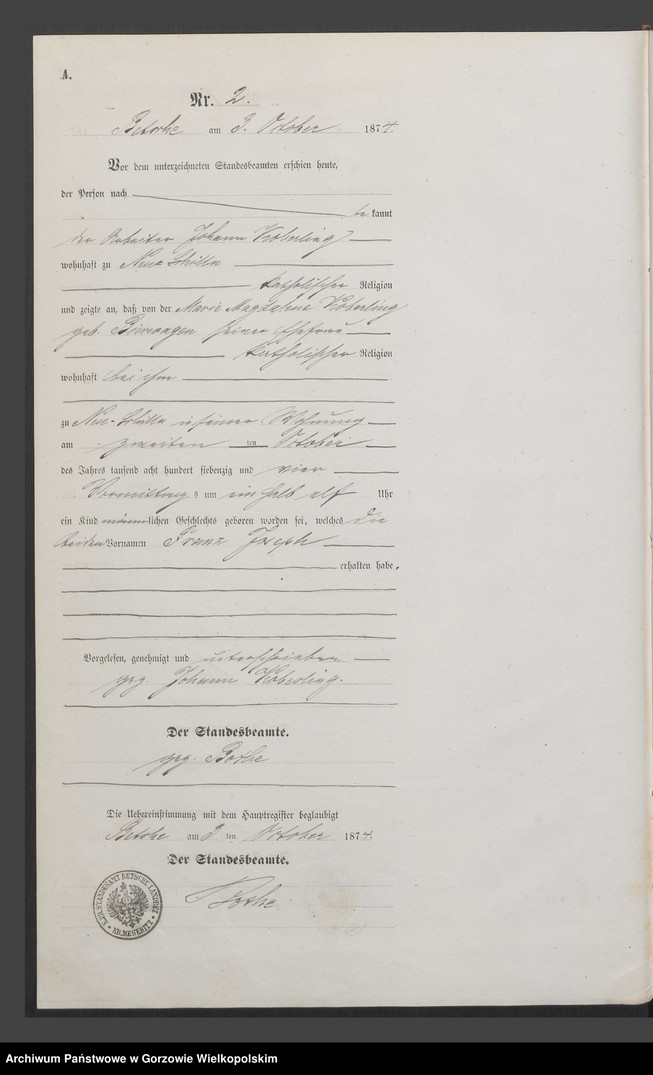 A.
Nr. 2.
Betsche am 3. October 1874.
Vor dem unterzeichneten Standesbeamten erschien heute,
der Person nach
bekannt
der Arbeiter Johann Koberling
wohnhaft zu Neu-
katholischer Religion
und zeigte an, daß von der Marie Magdalene Koberling
geb. seiner Ehefrau
katholischer Religion
wohnhaft bei ihm
zu Neu- in seiner Wohnung
am zweiten ten October
des Jahres tausend acht hundert siebenzig und vier
Vormittags um ein halb elf Uhr
ein Kind männlichen Geschlechts geboren worden sei, welches die
beiden Vornamen Franz Joseph
erhalten habe.
Vorgelesen, genehmigt und unterschrieben
gez. Johann Koberling.
Der Standesbeamte.
gez. Bothe
Die Uebereinstimmung mit dem Hauptregister beglaubigt
Betsche am 3 ten October 1874.
Der Standesbeamte.
Bothe
STANDESAMT BETSCHE
KR. MESERITZ
Archiwum Państwowe w Gorzowie Wielkopolskim